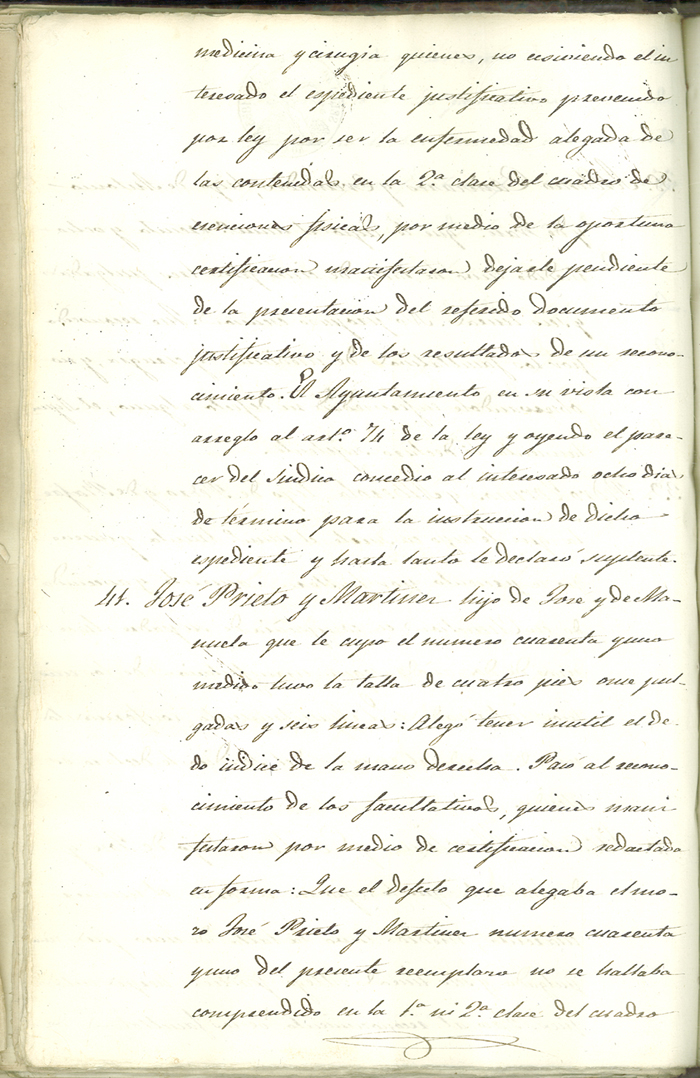 medicina y cirugia quienes, no exiviendo el in
teresado el espediente justificativo prevenido
por ley por ser la enfermedad alegada de
las contenidas en la 2.ª clase del cuadro de
exenciones fisicas, por medio de la oportuna
certificacion manifestaron dejarle pendiente
de la presentacion del referido documento
justificativo y de los resultados de un recono-
cimiento. El Ayuntamiento en su vista con
arreglo al art.º 74 de la ley y oyendo el pare-
cer del Sindico concedio al interesado ocho dias
de término para la instruccion de dicho
espediente y hasta tanto le declaró suplente.
41. José Prieto y Martinez hijo de Jose y de Ma-
nuela que le cupo el numero cuarenta y uno
medido tuvo la talla de cuatro pies once pul-
gadas y seis lineas: Alegó tener inutil el de-
do indice de la mano derecha. Pasó al recono-
cimiento de los facultativos, quienes mani
festaron por medio de certificacion redactada
en forma: Que el defecto que alegaba el mo-
zo José Prieto y Martinez numero cuarenta
y uno del presente reemplazo no se hallaba
comprendido en la 1.ª ni 2.ª clase del cuadro